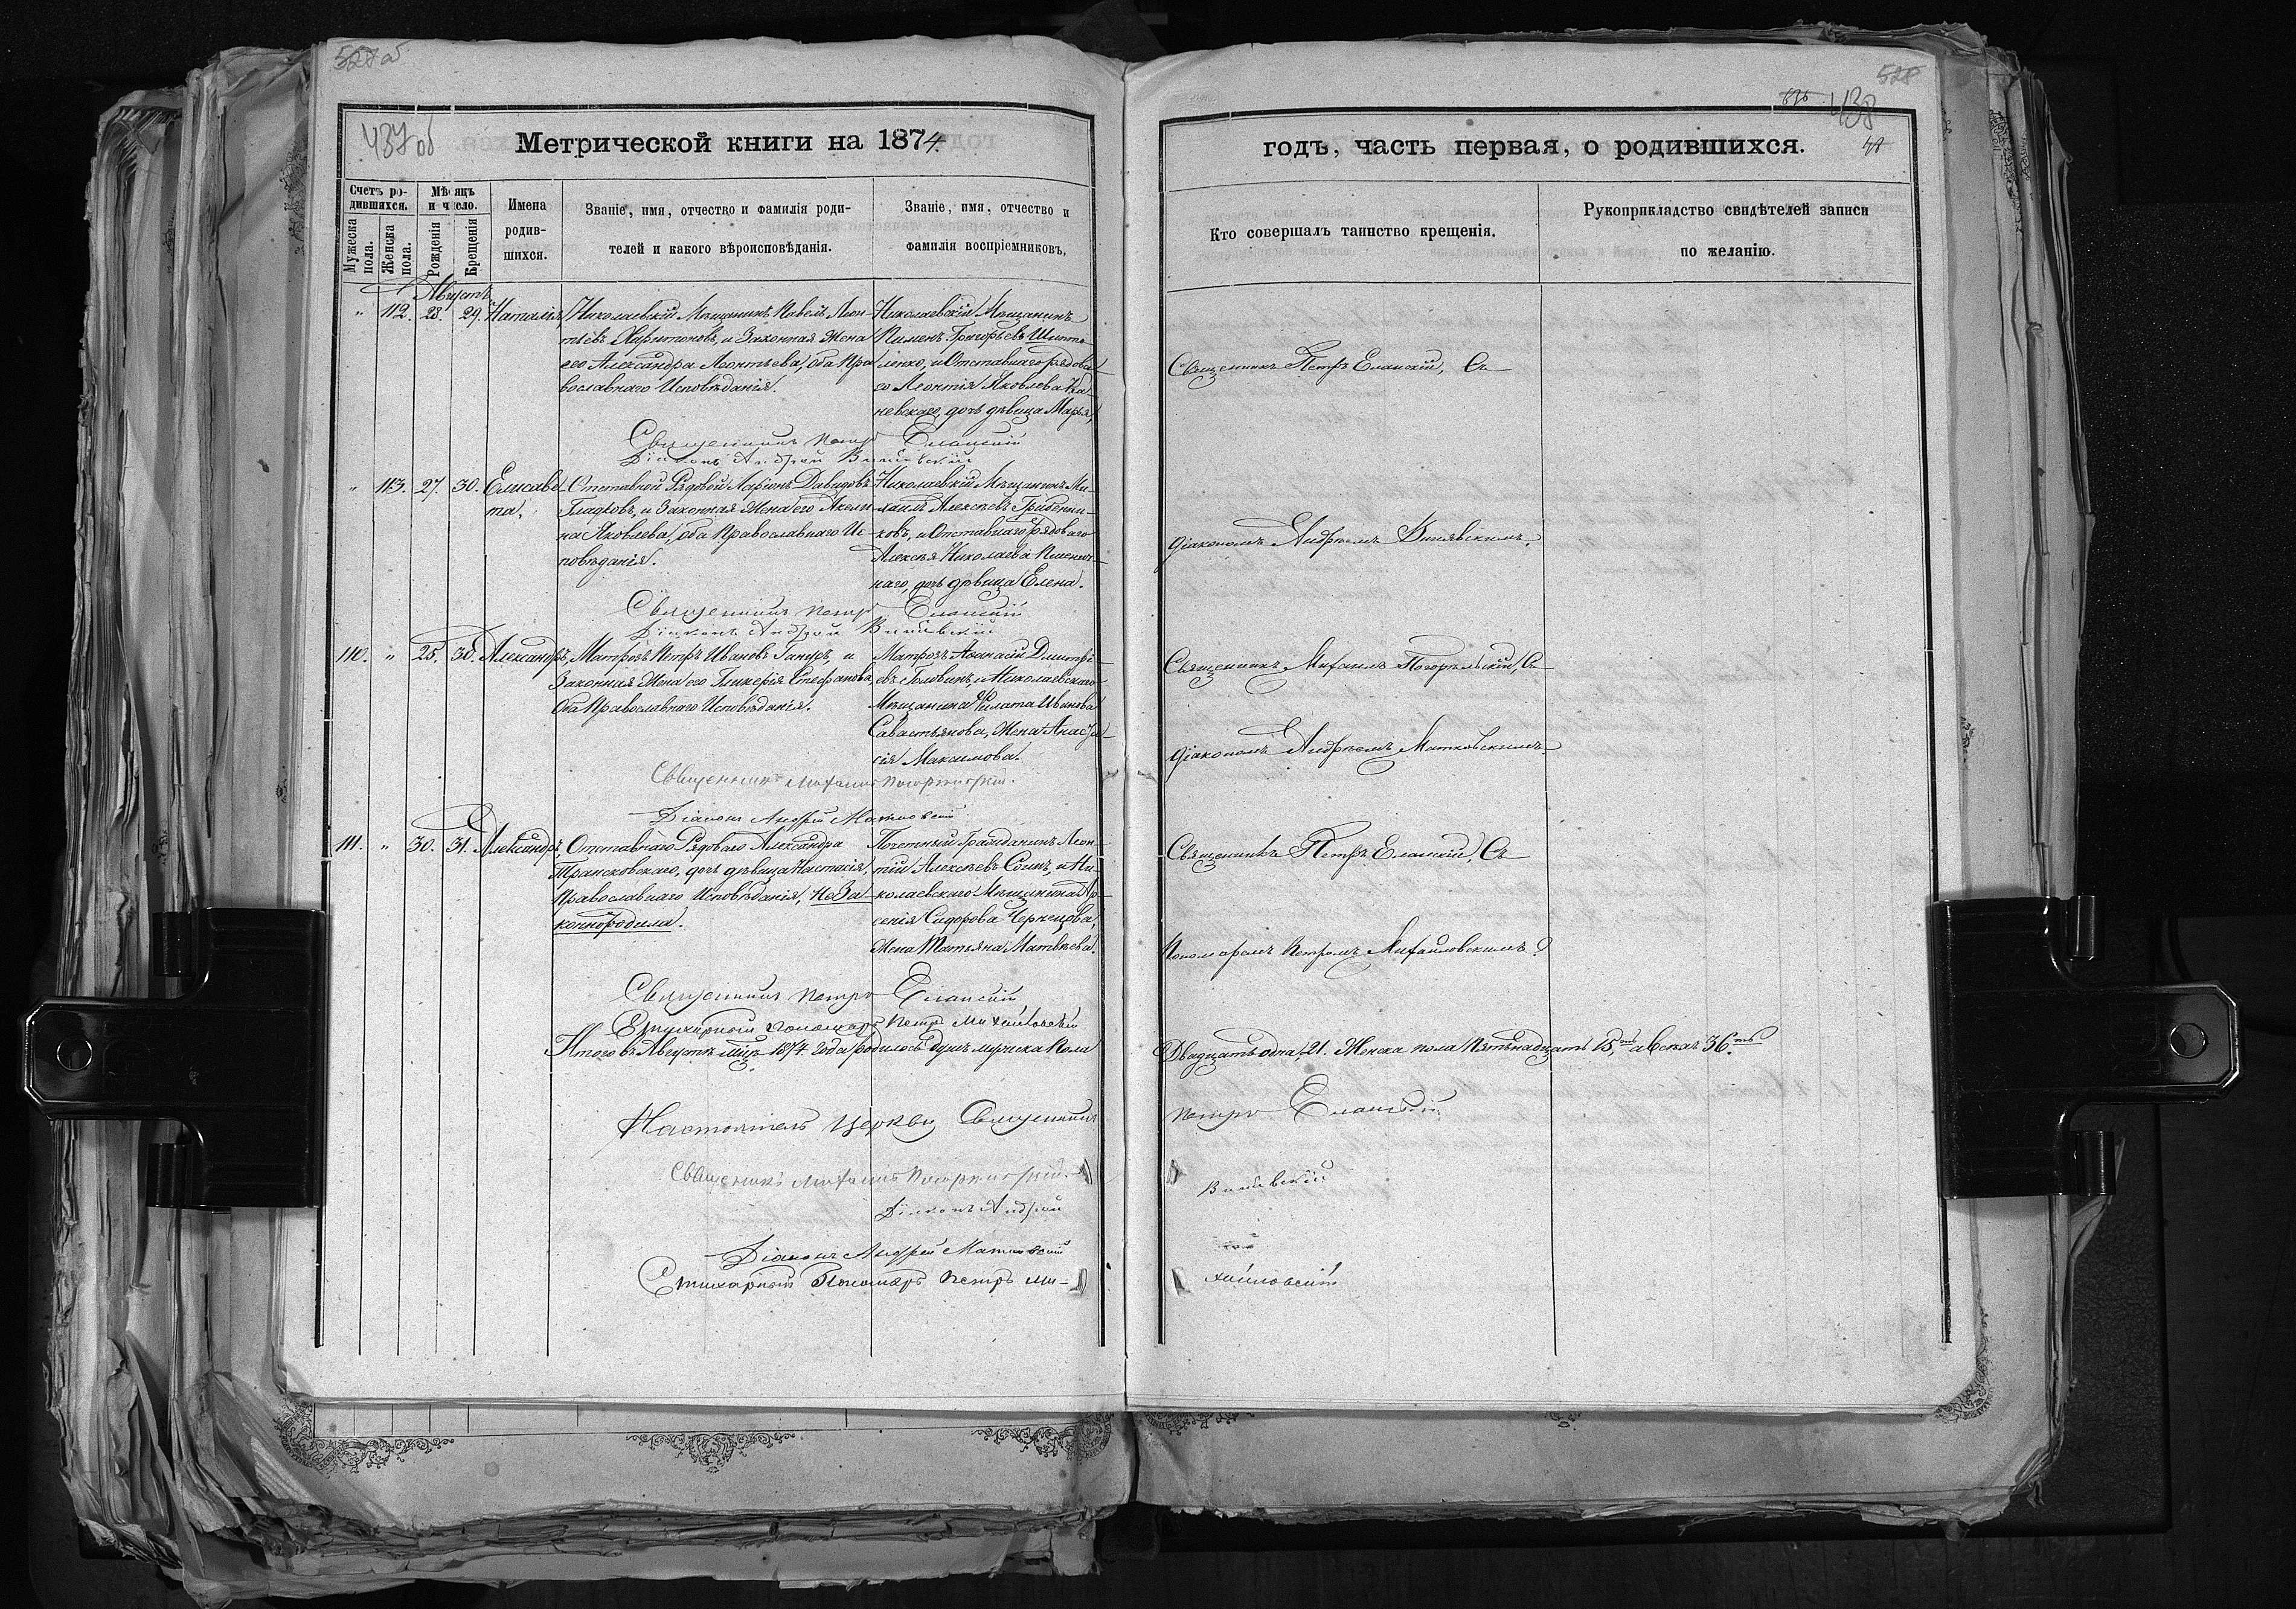 437 об
Метрической книги на 1874
Счетъ ро-
дившихся.
Мужеска пола.
Женска пола.
Мѣсяцъ
и число.
Рожденія
Крещенія
Имена
родив-
шихся.
Званіе, имя, отчество и фамилія роди-
телей и какого вѣроисповѣданія.
Званіе, имя, отчество и
фамилія воспріемниковъ.
Августъ
" 112. 28. 29. Наталія,
Николаевскій Мѣщанинъ Павелъ Леон-
тьевъ Харитоновъ, и Законная Жена
его Александра Леонтьева, оба Пра
вославнаго Исповѣданія.
Николаевскій Мѣщанинъ
Пименъ Григорьевъ
ленко, и Отставнаго рядова-
го Леонтія Яковлева Ка
невскаго, дочь дѣвица Марья,
Священникъ Петръ Еланскій
Діаконъ Андрей
" 113. 27. 30. Елисаве
та,
Отставной Рядовой Ларіонъ Давидовъ
Гладковъ, и Законная Жена его Акели
на Яковлева, оба Православнаго Ис-
повѣданія.
Николаевскій Мѣщанинъ Ми-
хаилъ Алексѣевъ Гребенни-
ковъ, и Отставнаго рядоваго
Алексѣя Николаева
наго, дочь дѣвица Елена.
Священникъ Петръ Еланскій
Діаконъ Андрей
110. " 25. 30. Александръ,
Матрозъ Петръ Ивановъ и
Законная Жена его Гликерія Стефанова,
Оба Православнаго Исповѣданія.
Матрозъ Аѳанасій Дмитрі-
евъ Головинъ, и Николаевскаго
Мѣщанина Филата Иванова
Савастьянова, Жена Анаста
сія Максимова.
Священникъ Михаилъ Погорѣльскій.
Діаконъ Андрей Матковскій
111. " 30. 31. Александръ,
Отставнаго Рядоваго Александра
Трансковскаго, дочь дѣвица Настасія,
Православнаго Исповѣданія, Неза-
коннородила.
Почетный Гражданинъ Леон-
тій Алексѣевъ Соинъ, и Ни-
колаевскаго Мѣщанина Ар-
сенія Сидорова Чернецова,
Жена Татьяна Матвѣева.
Священникъ Петръ Еланскій
Стихарный пономарь Петръ Михайловскій
Итого въ Августѣ мцѣ 1874. года родилось душъ мужска пола
Настоятель Церкви Священникъ
Священникъ Михаилъ Погорѣльскій.
Діаконъ Андрей
Діаконъ Андрей Матковскій
Стихарный Пономарь Петръ Ми-
528
438
годъ, часть первая, о родившихся.
Кто совершалъ таинство крещенія.
Рукоприкладство свидѣтелей записи
по желанію.
Священникъ Петръ Еланскій, Съ
діакономъ Андреемъ
Священникъ Михаилъ Погорѣльскій, Съ
діакономъ Андреемъ Матковскимъ.
Священникъ Петръ Еланскій, Съ
Пономаремъ Петромъ Михайловскимъ.
Двадцать одна, 21. Женска пола Пятьнадцать 15, а всѣхъ 36.
Петръ Еланскій
хайловскій